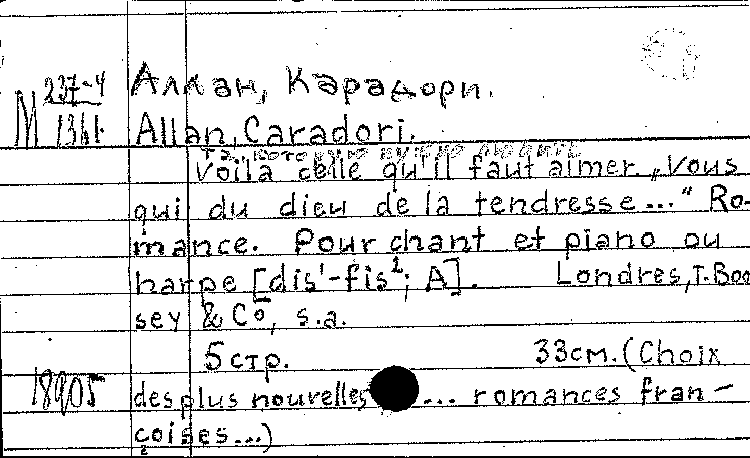 237-4
М 1361
Аллан, Карадори.
Allan, Caradori.
Та, которую нужно любить
Voilà celle qu'il faut aimer. „Vous
qui du dieu de la tendresse..." Ro-
mance. Pour chant et piano ou
harpe [dis¹-fis²; A]. Londres, T. Boo
sey & Co, s.a.
5 стр. 33см. (Choix
18905
des plus nouvelles ... romances fran-
çoises...)